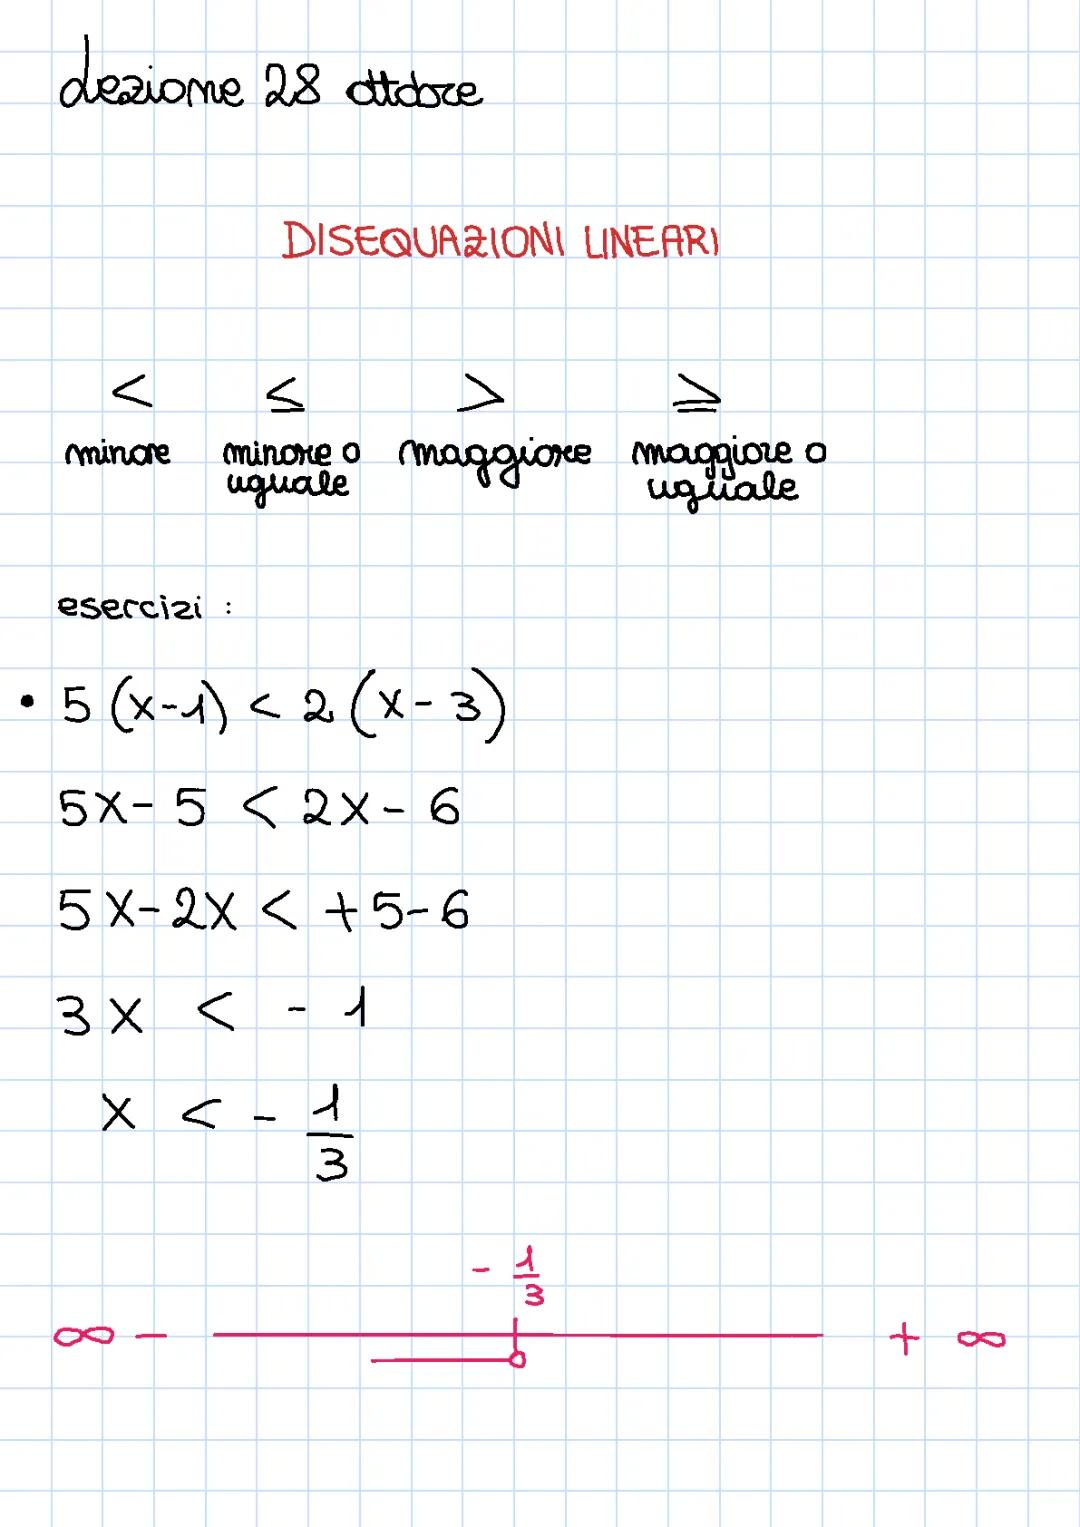 Lezione 28 ottobre
DISEQUAZIONI LINEARI
< ≤ > ≥
minore minore o uguale maggiore maggiore o uguale
esercizi :
• 5 (x-1) < 2 (x-3)
5x - 5 < 2x - 6
5x - 2x < +5 - 6
3x < -1
x < - 1/3
- 1/3
∞ - + ∞